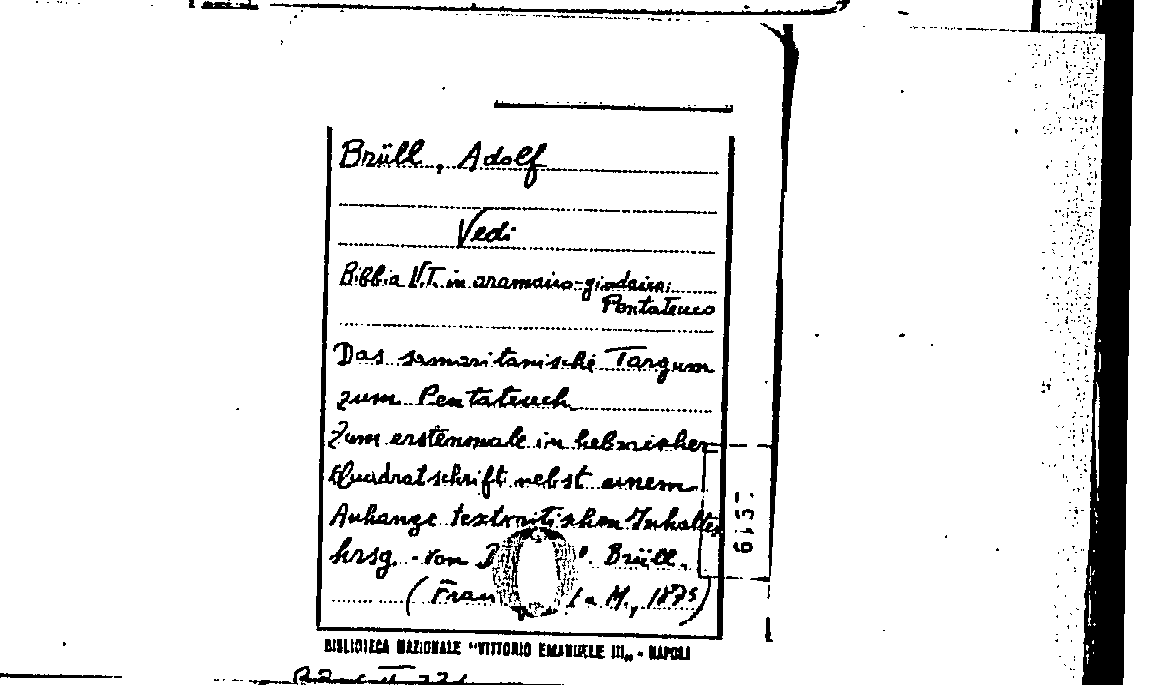 Brüll, Adolf
Vedi
Bibbia V.T. in aramaico-giudaico:
Pentateuco
Das samaritanische Targum
zum Pentateuch
Zum erstenmale in hebräischer
Quadratschrift nebst einem
Anhange textkritischen Inhaltes
hrsg. von Brüll.
( a. M., 1875)
BIBLIOTECA NAZIONALE "VITTORIO EMANUELE III„ - NAPOLI